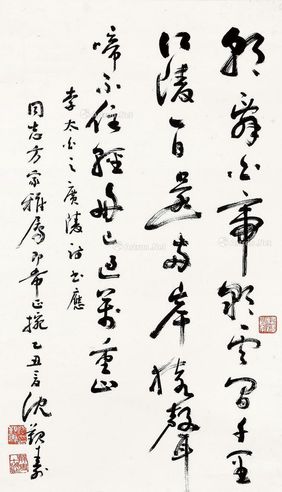 朝辞白帝彩云间千里
江陵一日还两岸猿声
啼不住轻舟已过万重山
李太白之广陵诗书应
同志方家雅属即希正腕乙丑春沈觐寿